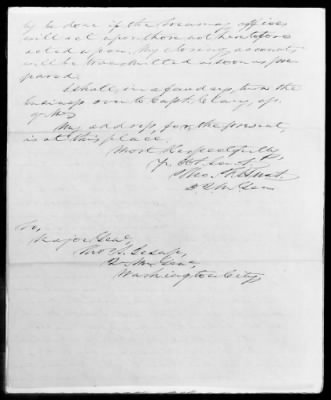 by be done if the Treasury officers
will act upon those not heretofore
acted upon. My closing accounts
will be transmitted as soon as pre
pared.
I shall, in a few days, turn the
business over to Capt. Clary, a.
q. M.
My address, for the present,
is at this place.
Most Respectfully
Yr. Obt. Servt.
Tho. F. Hunt.
D Q M Genl
To,
Major Genl.
Tho S. Jesup,
Qr. Mr. Genl.
Washington City,